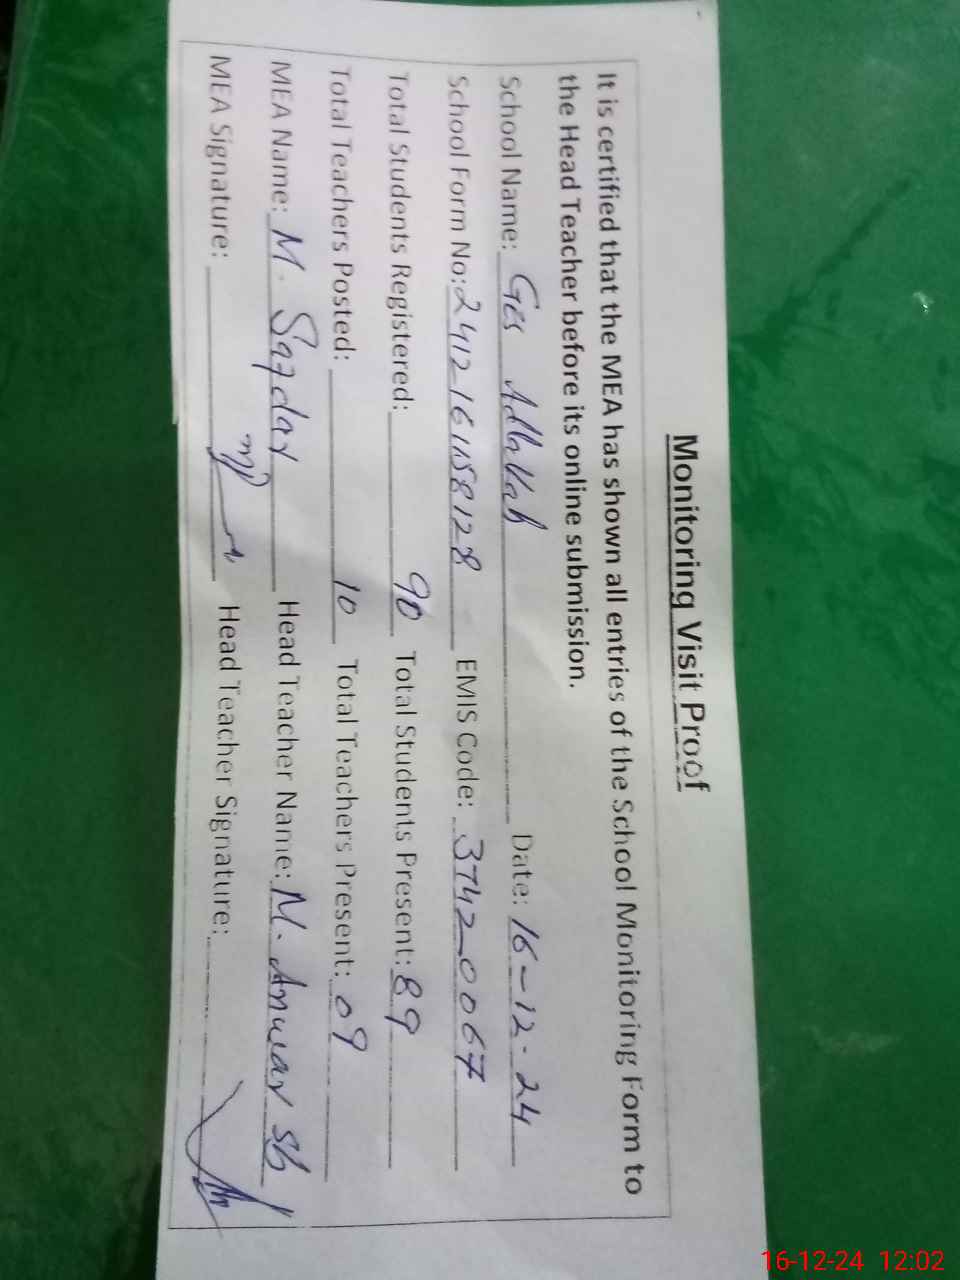 Monitoring Visit Proof
It is certified that the MEA has shown all entries of the School Monitoring Form to
the Head Teacher before its online submission.
School Name: Ges Date: 16-12-24
School Form No: EMIS Code: 37420067
Total Students Registered: 90 Total Students Present: 89
Total Teachers Posted: 10 Total Teachers Present: 09
MEA Name: M. Safdar Head Teacher Name: M. Anwar Sb
MEA Signature: Head Teacher Signature:
16-12-24 12:02